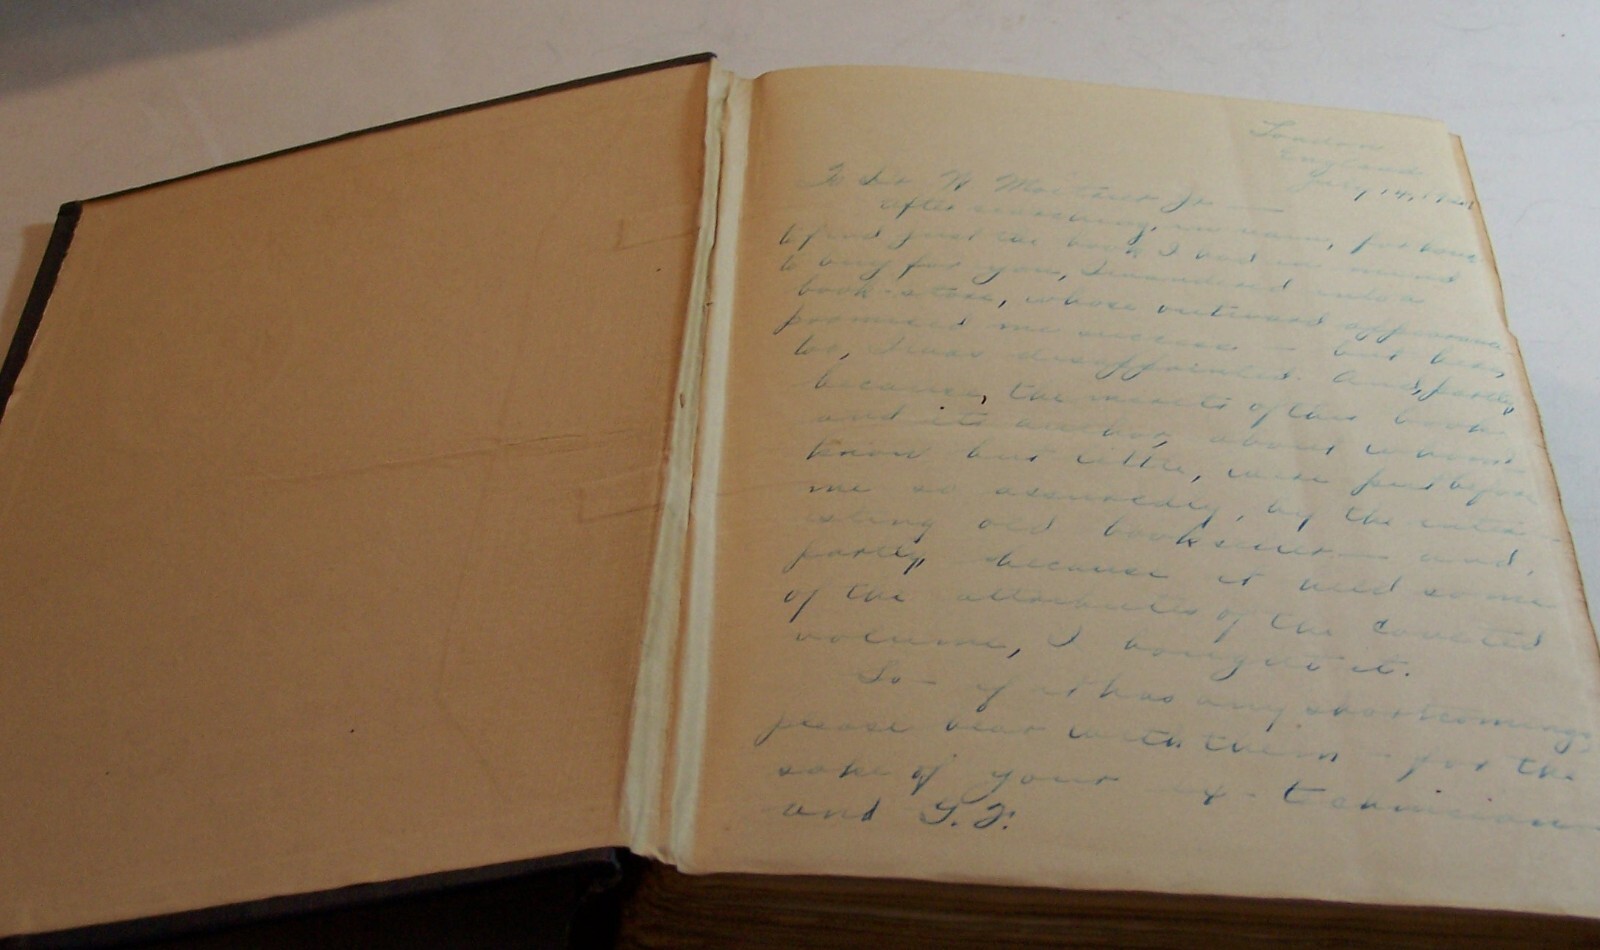 London
England
July 14, 19
To Dr. W Jr —
After searching, in vain, for
to find just the book I had in mind
to buy for you, I wandered into a
book-store, whose outward appearance
promised me success — but here,
too, I was disappointed. And, partly,
because, the merits of this book
and its author, about whom I
know but little, were put before
me so assuredly, by the inter-
esting old bookseller — and,
partly, because it held some
of the attributes of the coveted
volume, I bought it.
So — if it has any shortcomings,
please bear with them — for the
sake of your ex-technician
and